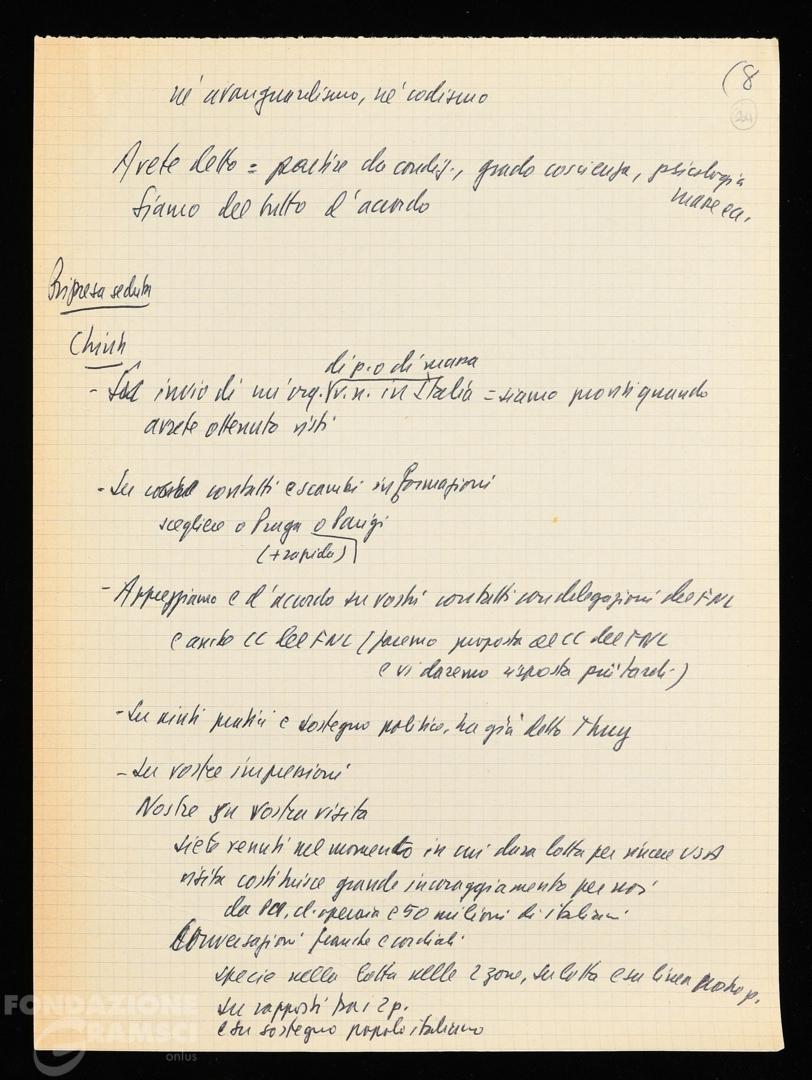 (8
201
né avanguardismo, né codismo
Avete detto = partire da condiz., grado coscienza, psicologia
masse ecc.
Siamo del tutto d'accordo
Ripresa seduta
Chinh
di p. o di massa
- Sul invio di un'org. v.n. in Italia = siamo pronti quando
avrete ottenuto visti
- Su contatti e scambi informazioni
scegliere o Praga o Parigi
(+ rapida)
- Apprezziamo e d'accordo su vostri contatti con delegazioni del FNL
e anche CC del FNL (faremo proposta al CC del FNL
e vi daremo risposta più tardi)
- Su aiuti pratici e sostegno politico, ha già detto Thuy
- Su vostre impressioni
Nostre su vostra visita
siete venuti nel momento in cui dura lotta per vincere USA
visita costituisce grande incoraggiamento per noi
da PCI, cl. operaia e 50 milioni di italiani
Conversazioni franche e cordiali
specie nella lotta nelle 2 zone, su lotta e su linea nostro p.
su rapporti tra i 2 p.
e su sostegno popolo italiano
FONDAZIONE
GRAMSCI
onlus